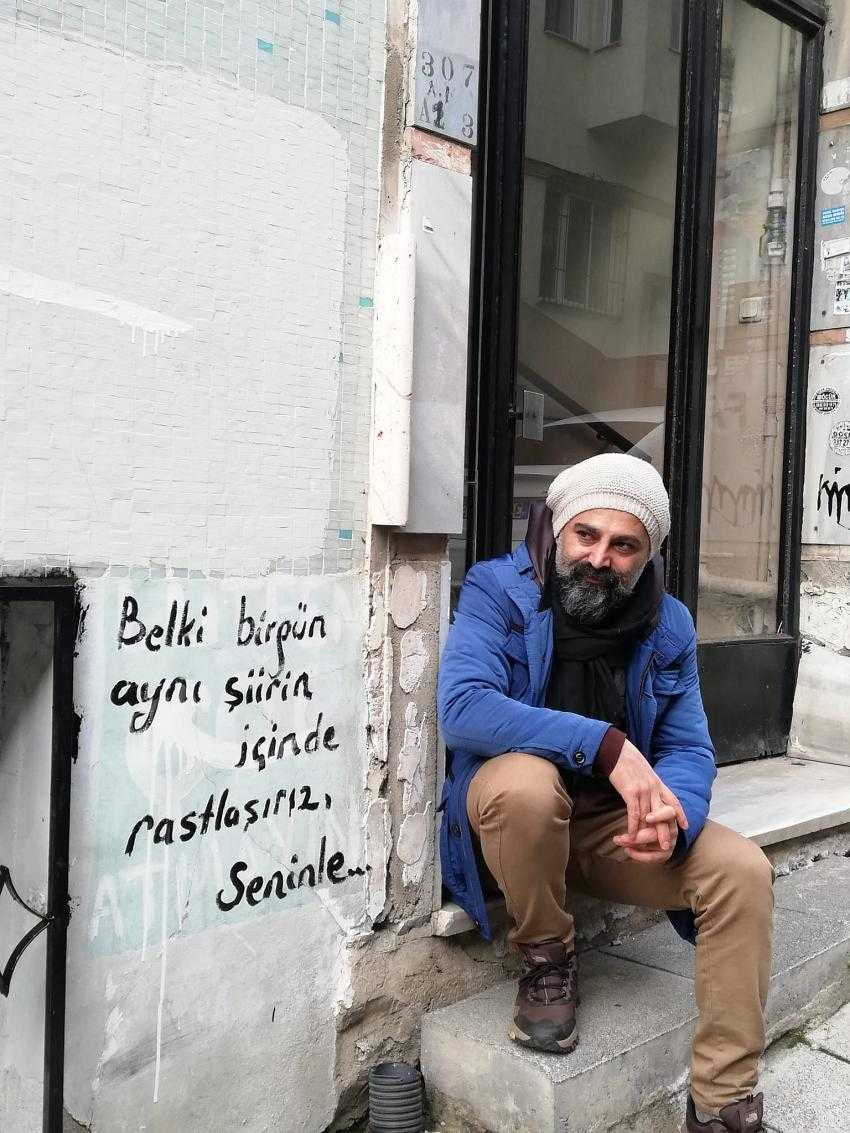 307
A.1
Belki birgün
aynı şiirin
içinde
rastlaşırız,
Seninle...